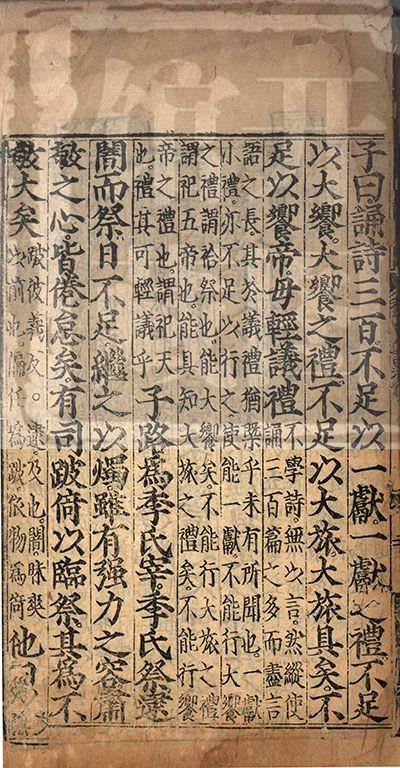 子曰誦詩三百不足以一獻一獻之禮不足
以大饗大饗之禮不足以大旅大旅具矣不
足以饗帝毋輕議禮
不學詩無以言然縱使
誦三百篇之多而盡言
語之長其於議禮猶槩乎未有所聞也一獻
小禮亦不足以行之使能一獻不能行大饗
之禮謂祫祭也能大饗矣不能行大旅之禮
謂祀五帝也能具知大旅之禮矣不能行饗
帝之禮也謂祀天
也禮其可輕議乎
子路爲季氏宰季氏祭逮
闇而祭日不足繼之以燭雖有强力之容肅
敬之心皆倦怠矣有司跛倚以臨祭其爲不
敬大矣
跛彼義反○逮及也闇昧爽
以前也偏任爲跛依物爲倚
他日